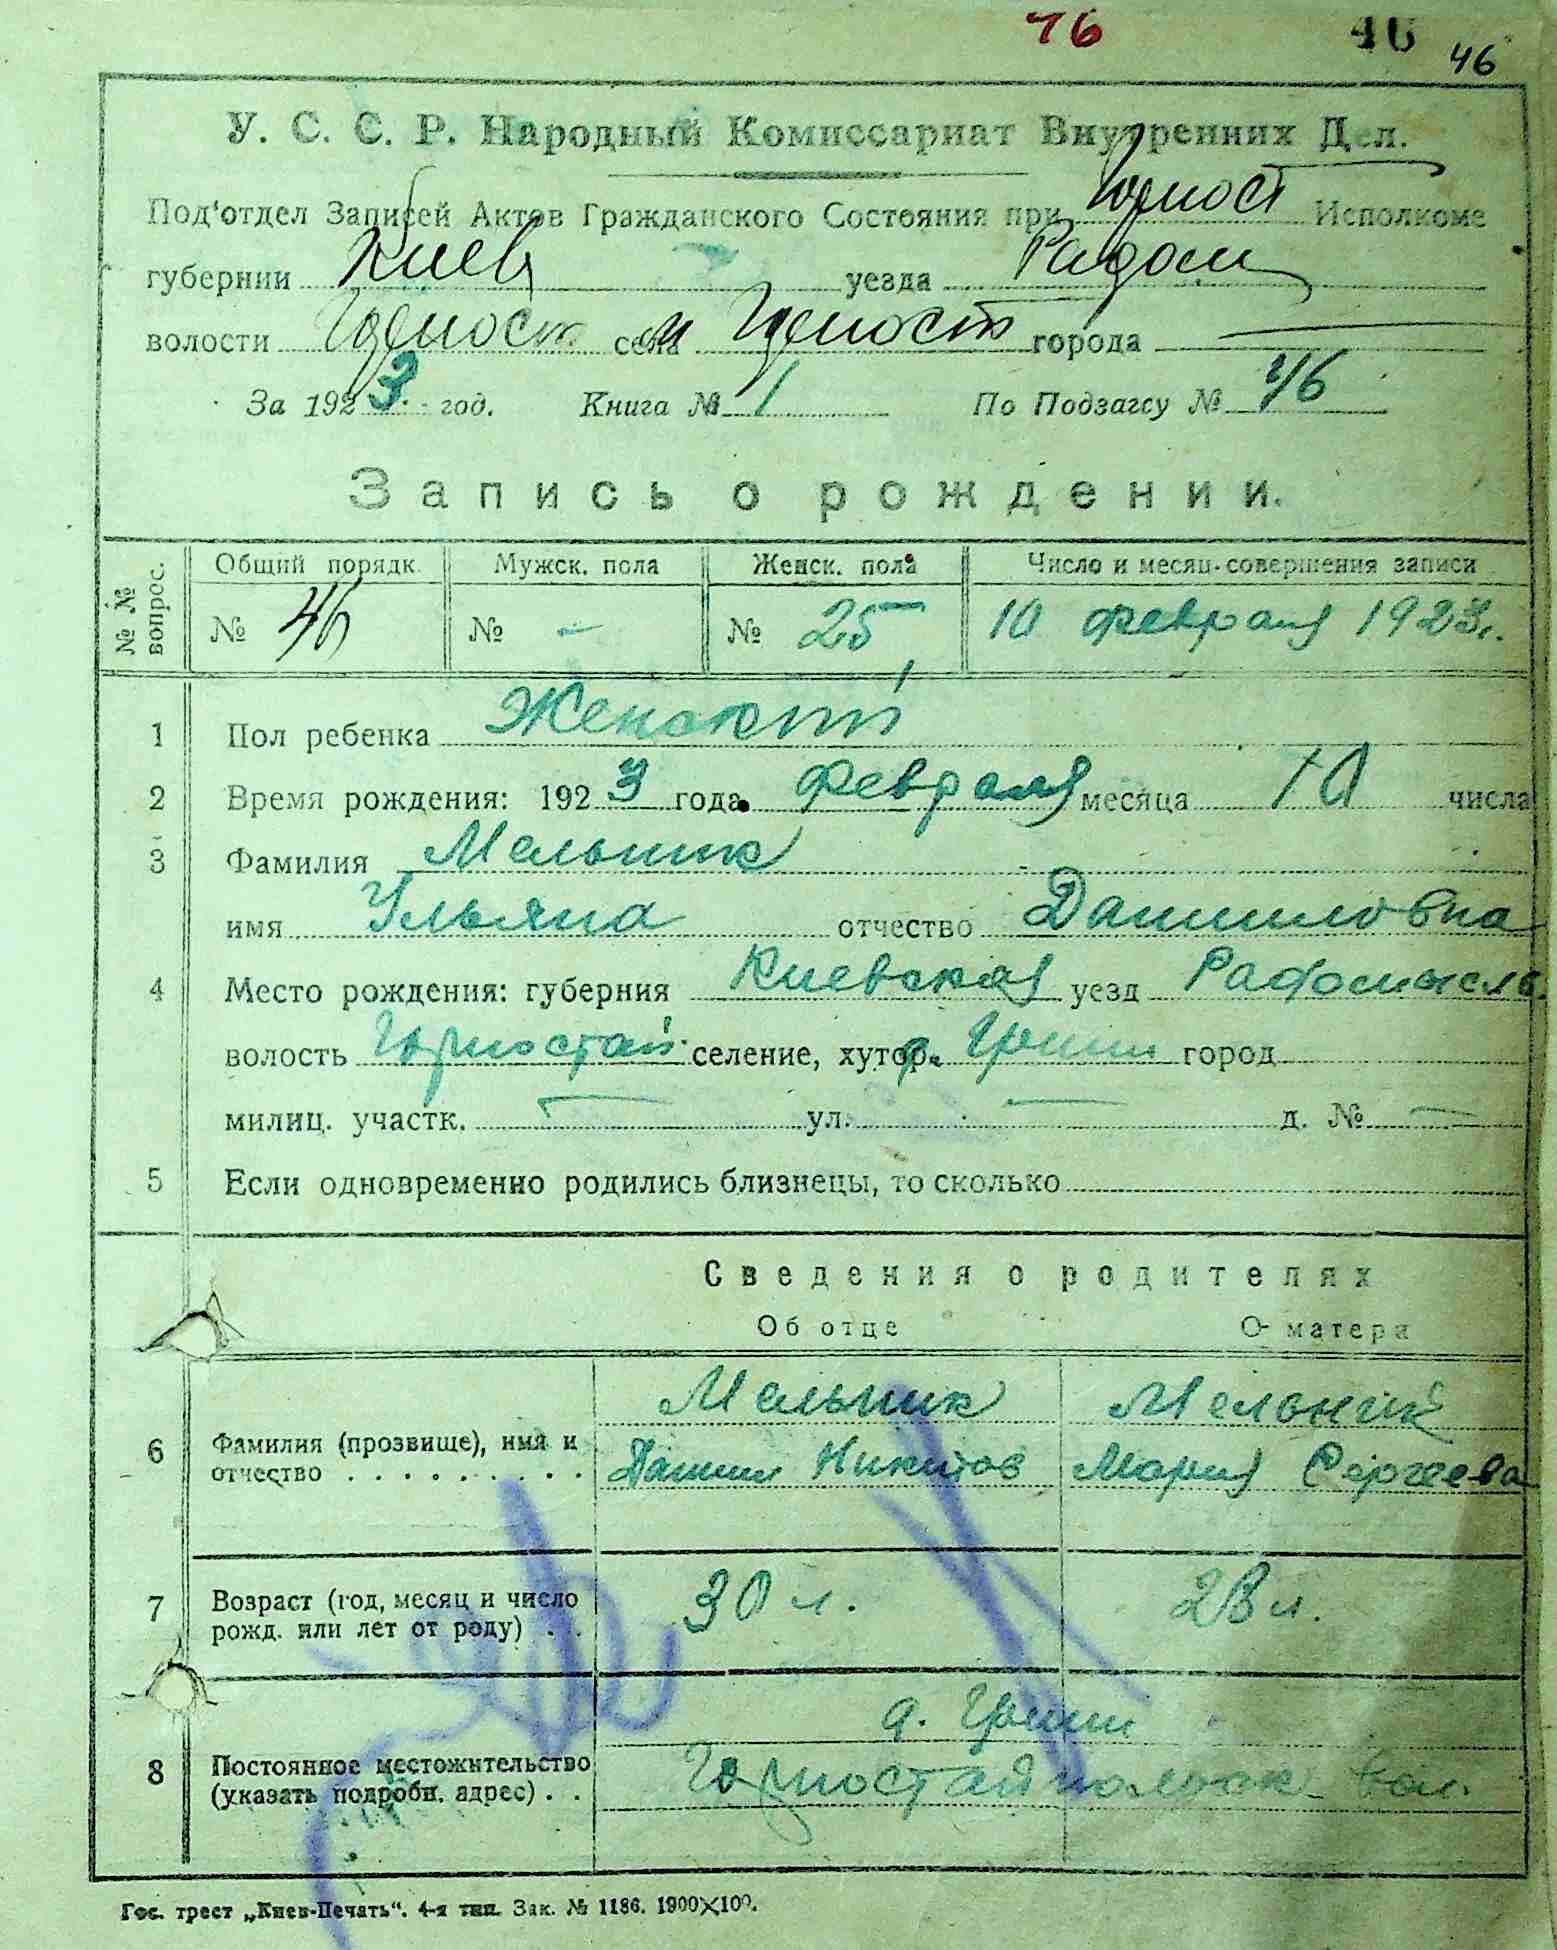 46 46 46
У. С. С. Р. Народный Комиссариат Внутренних Дел.
Под'отдел Записей Актов Гражданского Состояния при Горност Исполкоме
губернии Киев уезда Радом
волости Горност села м Горност города —
За 1923 год. Книга № 1 По Подзагсу № 46
Запись о рождении.
№ № вопрос. Общий порядк. Мужск. пола Женск. пола Число и месяц совершения записи
№ 46 № - № 25 10 февраля 1923 г.
1 Пол ребенка Женский
2 Время рождения: 1923 года февраля месяца 10 числа
3 Фамилия Мельник
имя Ульяна отчество Даниловна
4 Место рождения: губерния Киевская уезд Радомысль
волость Горностай селение, хутор. город
милиц. участк. — ул. — д. № —
5 Если одновременно родились близнецы, то сколько
Сведения о родителях
Об отце О матери
Мельник Мельник
6 Фамилия (прозвище), имя и отчество Данил Никитов Мария Сергеева
7 Возраст (год, месяц и число рожд. или лет от роду) 30 л. 28 л.
д.
8 Постоянное местожительство (указать подробн. адрес) Горностайпольск вол.
Гос. трест „Киев-Печать“. 4-я тип. Зак. № 1186. 1900×100.